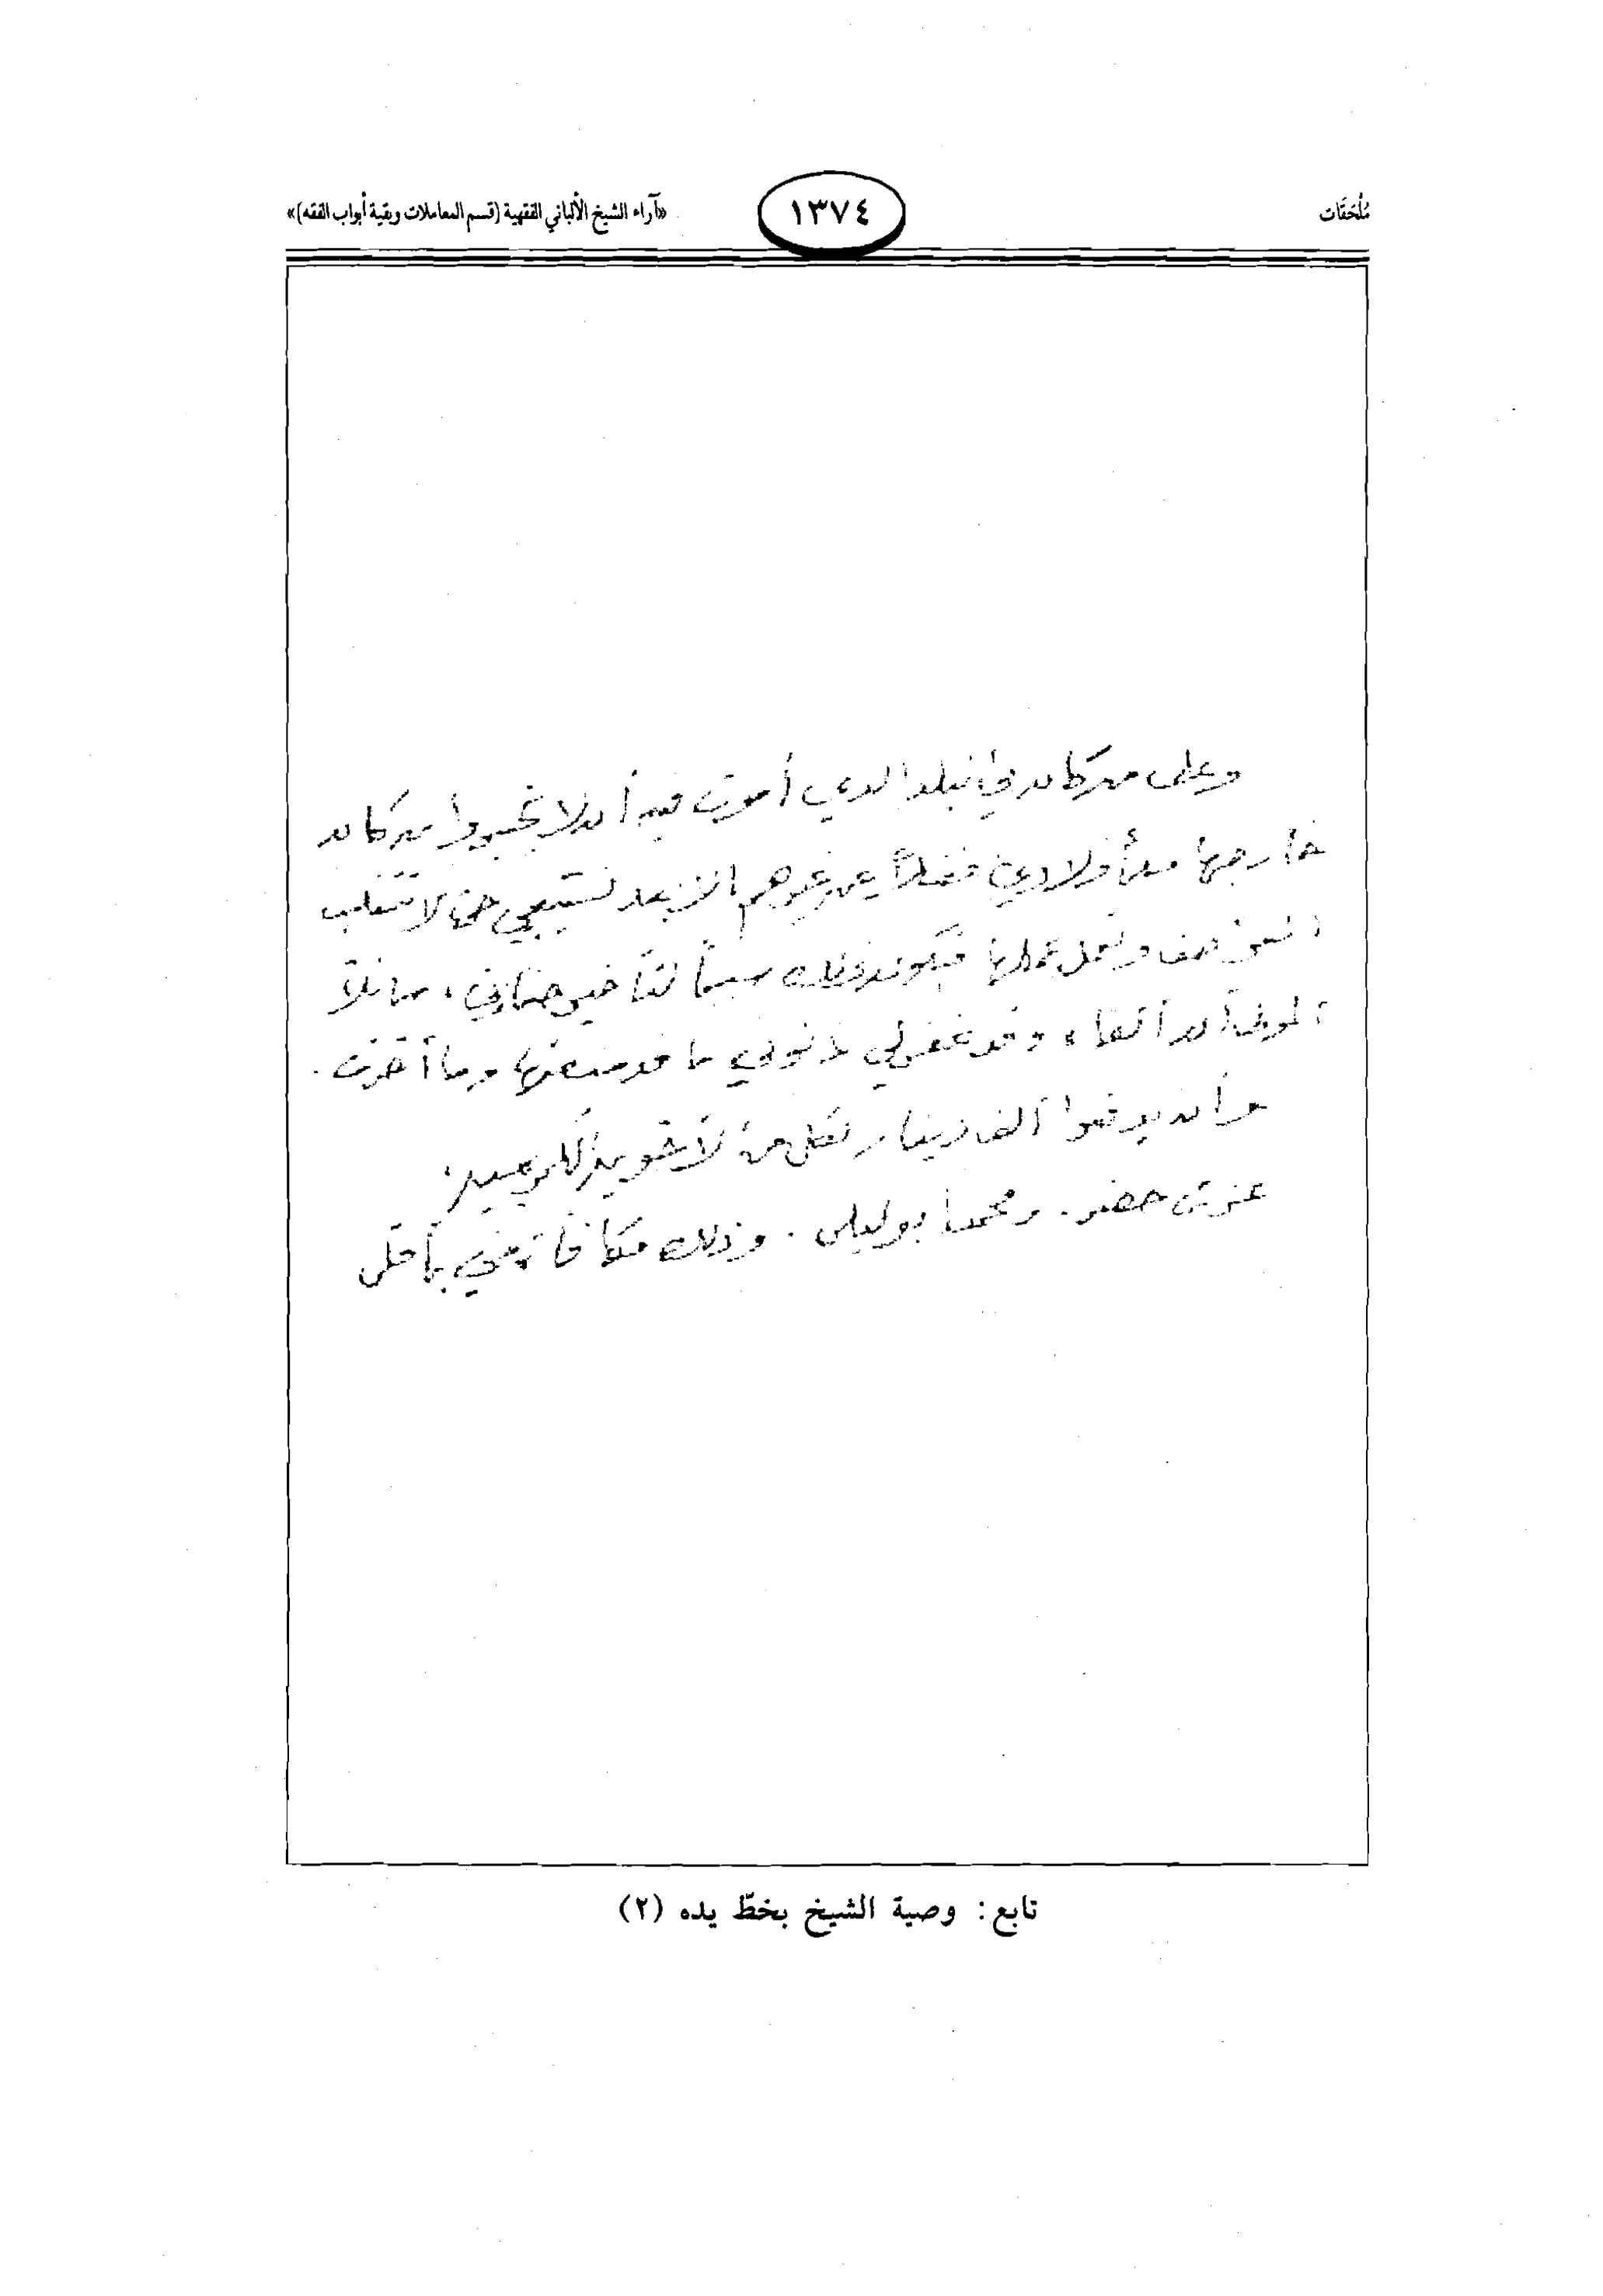 مُلْحَقَات
١٣٧٤
«آراء الشيخ الألباني الفقهية (قسم المعاملات وبقية أبواب الفقه)»
وعلى من كان في البلد الذي أموت فيه أن لا يخبروا من كان
خارجها من أولادي فضلاً عن غيرهم إلا بعد تشييعي حتى لا تتغلب
العواطف وتعمل عملها فيكون ذلك سبباً لتأخير جنازتي، سائلاً
المولى أن ألقاه وقد غفر لي ذنوبي ما قدمت منها وما أخرت.
وأن يدفعوا ألف دينار لكل من الأخوين الكريمين:
عزت خضر. ومحمد أبو ليلى. وذلك مكافأة مني بأقل
تابع: وصية الشيخ بخطّ يده (٢)